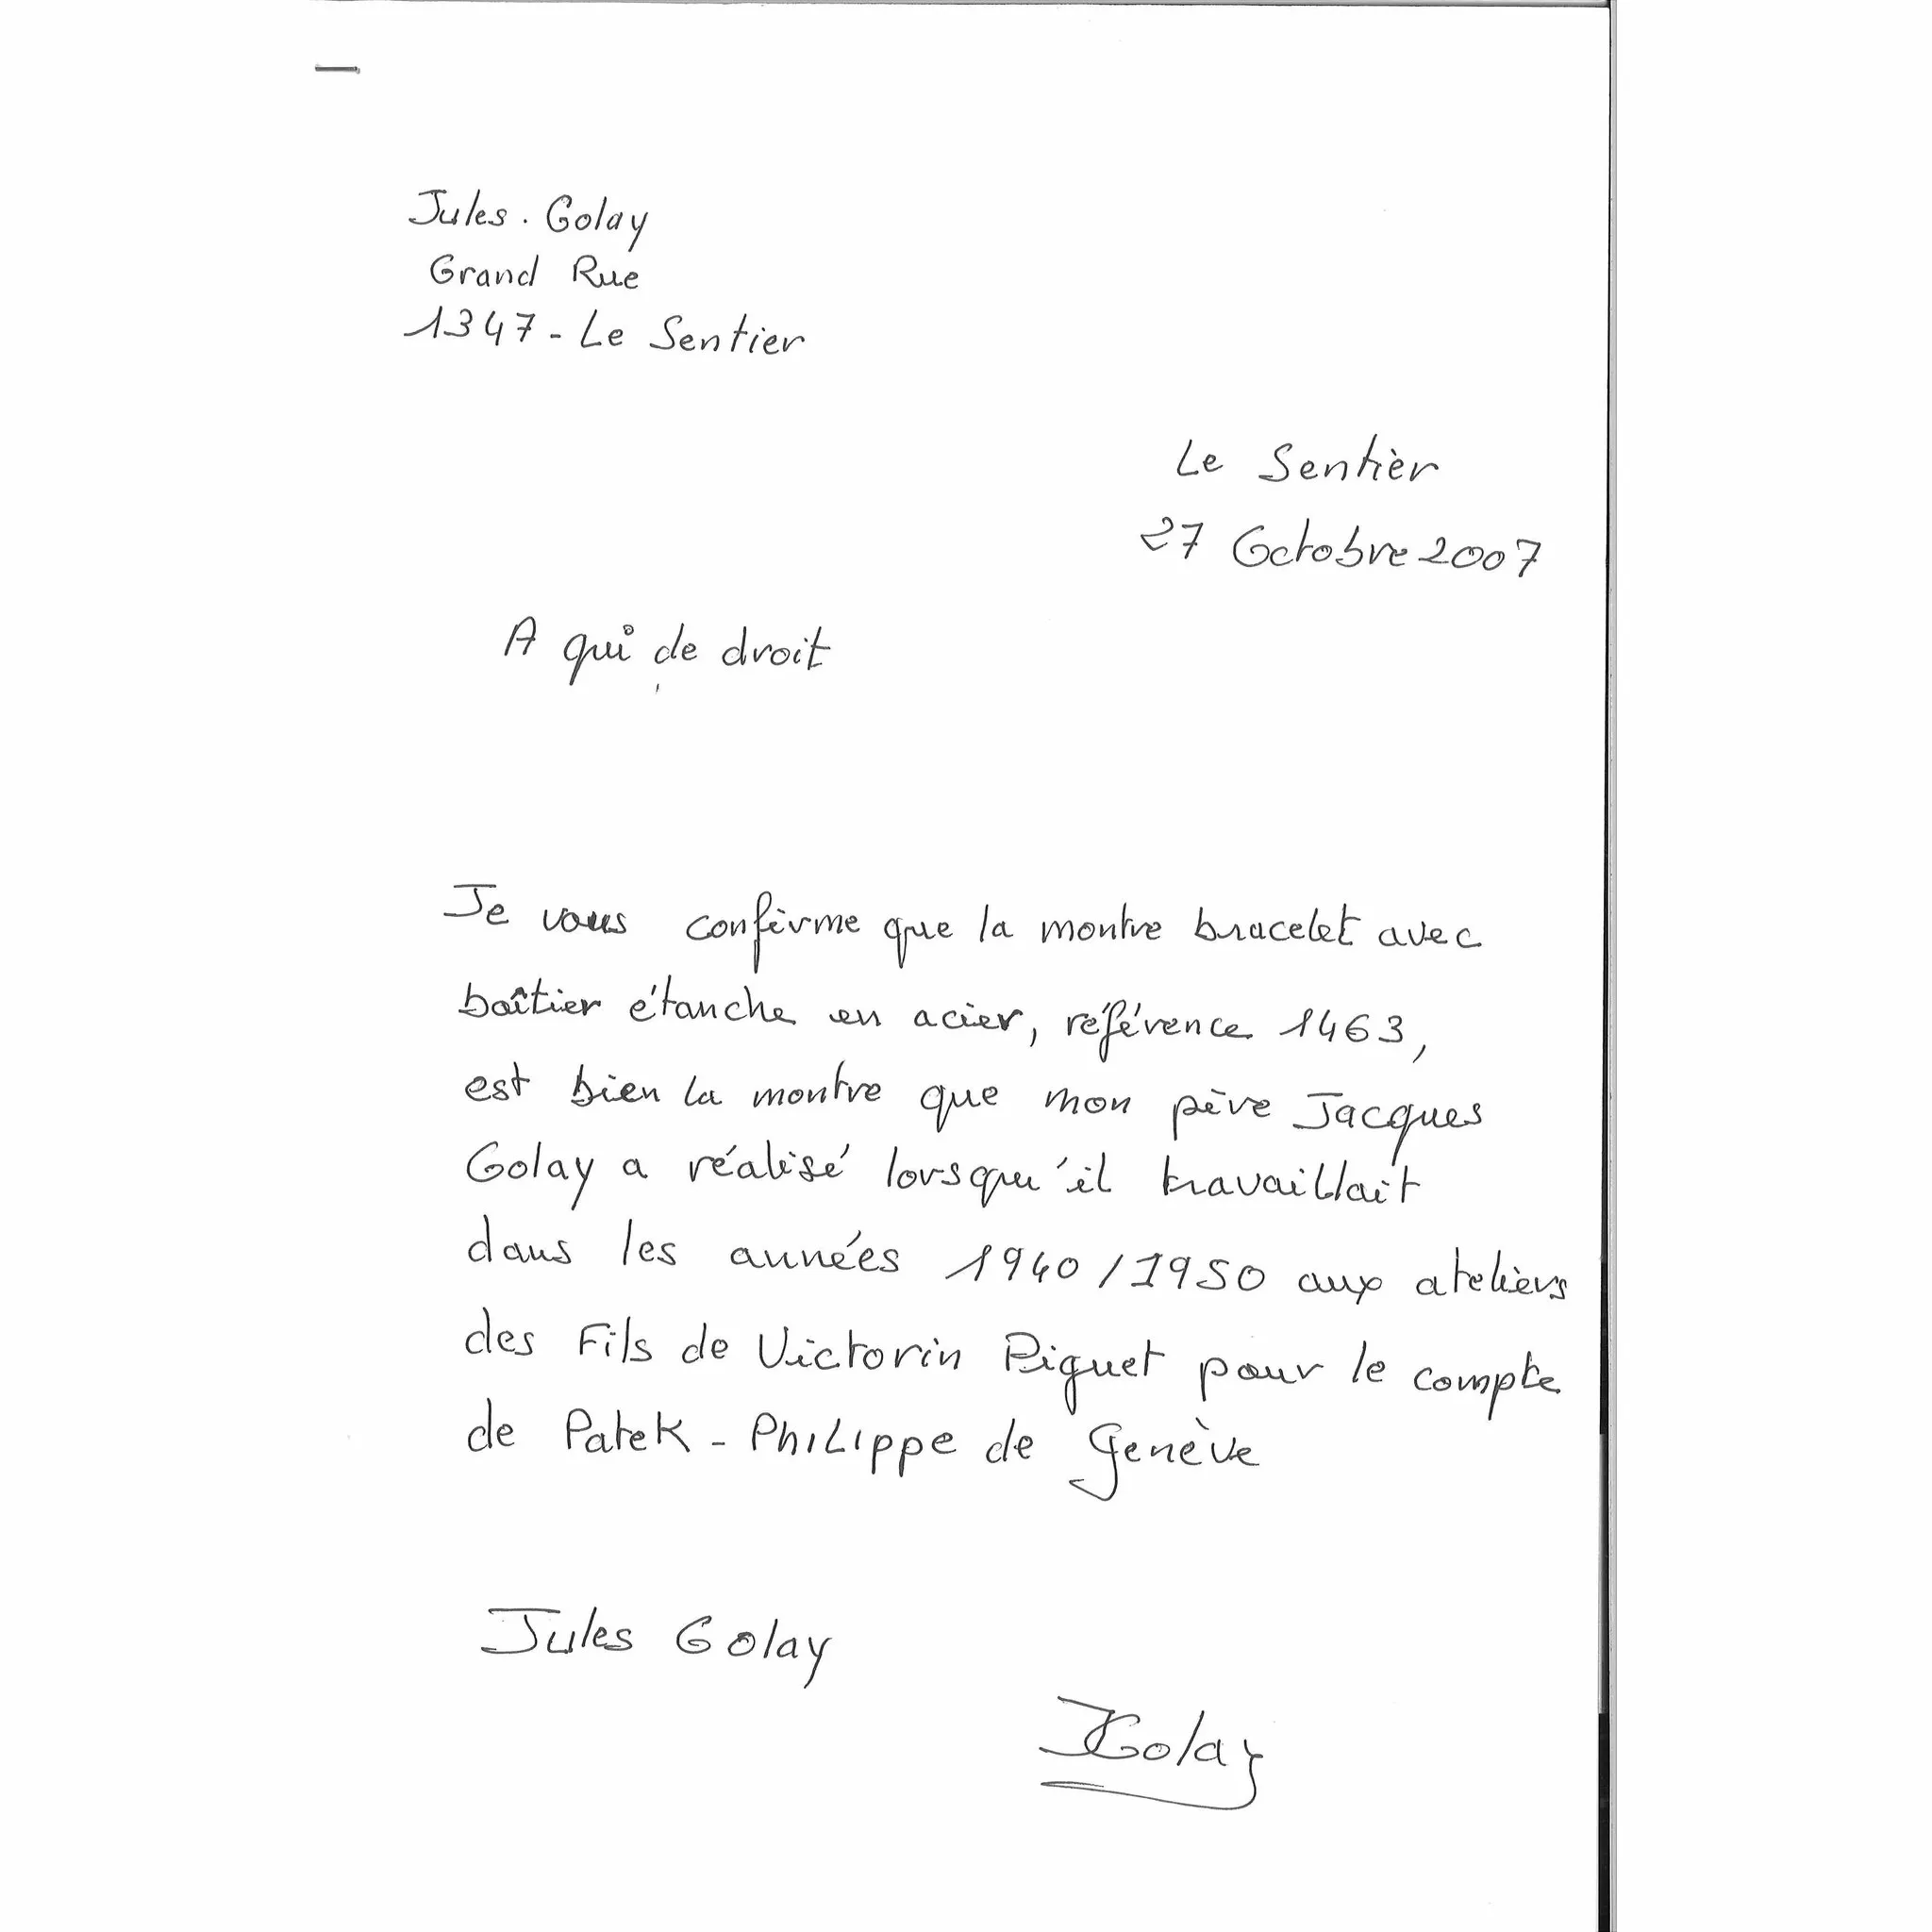 Jules. Golay
Grand Rue
1347 - Le Sentier
Le Sentier
27 Octobre 2007
A qui de droit
Je vous confirme que la montre bracelet avec
boîtier étanche en acier, référence 1463,
est bien la montre que mon père Jacques
Golay a réalisé lorsqu'il travaillait
dans les années 1940/1950 aux ateliers
des Fils de Victorin Piguet pour le compte
de Patek - Philippe de Genève
Jules Golay
JGolay